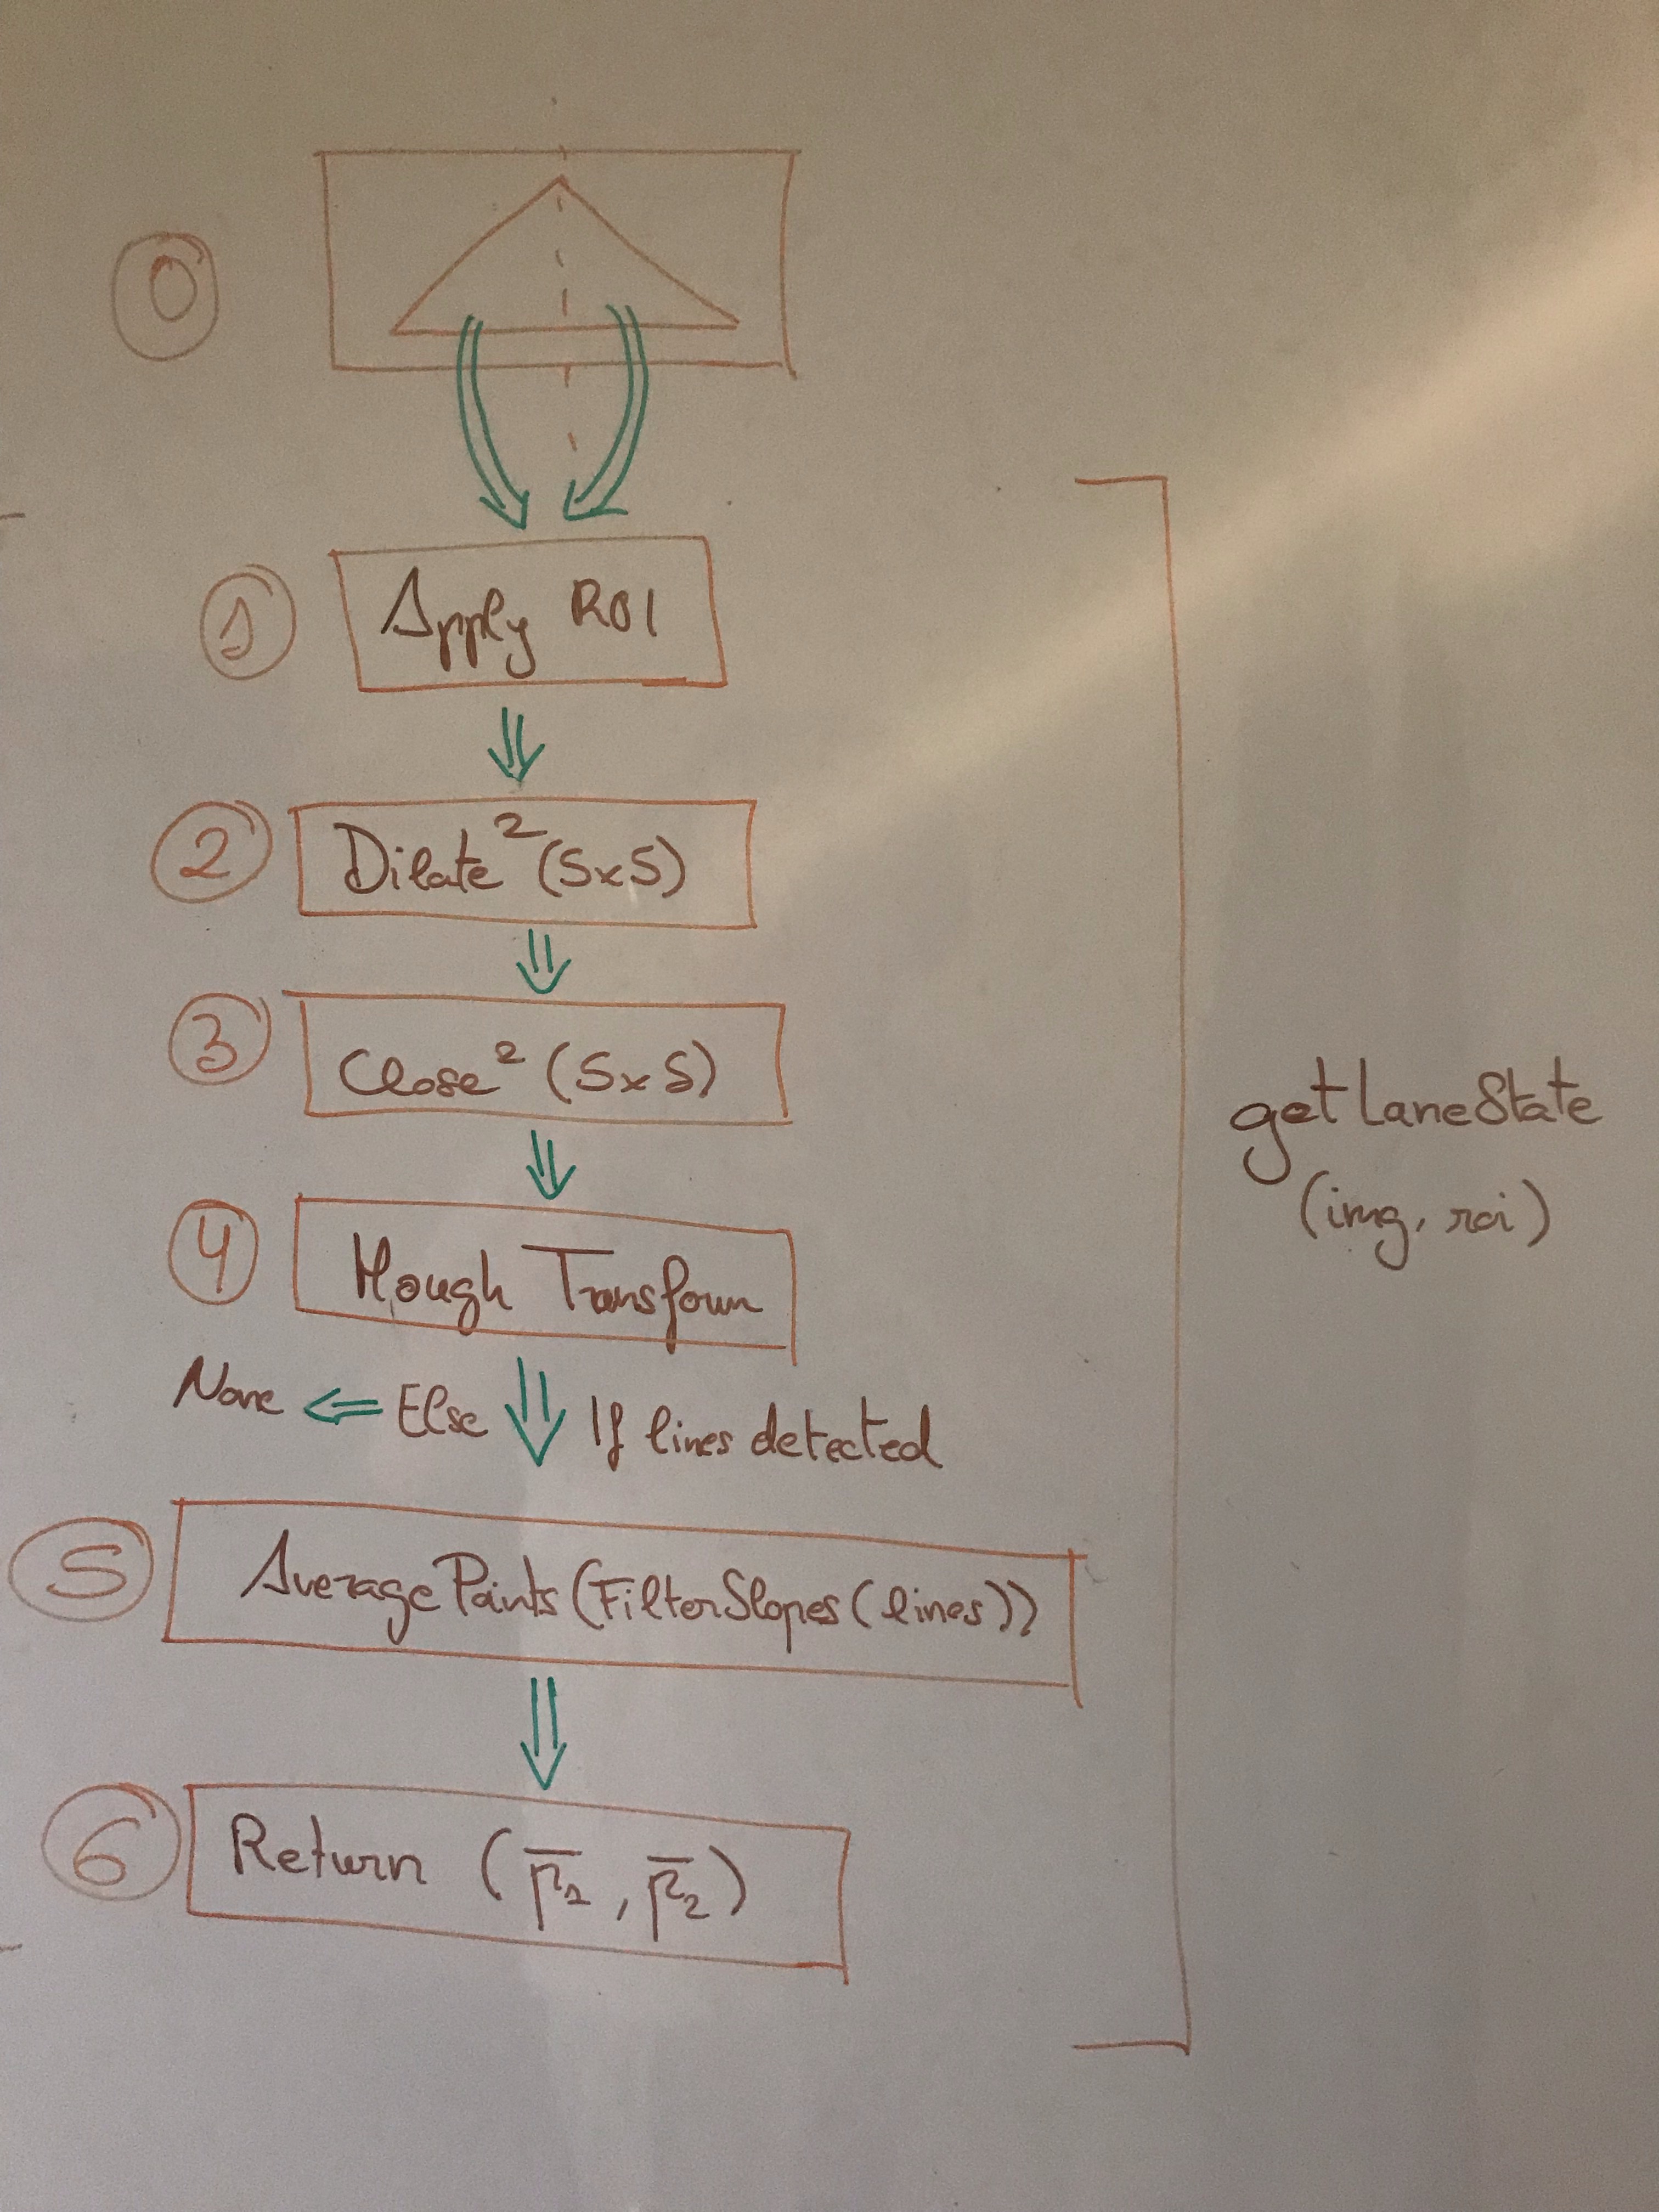 0
1
Apply ROI
2
Dilate² (5x5)
3
Close² (5x5)
4
Hough Transform
None ⇐ Else If lines detected
5
AveragePoints(FilterSlopes(lines))
6
Return (p̅₁, p̅₂)
getLaneState
(img, roi)